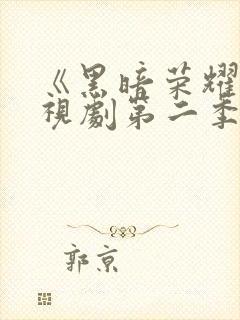 《黑暗荣耀
視劇第二季
郭京